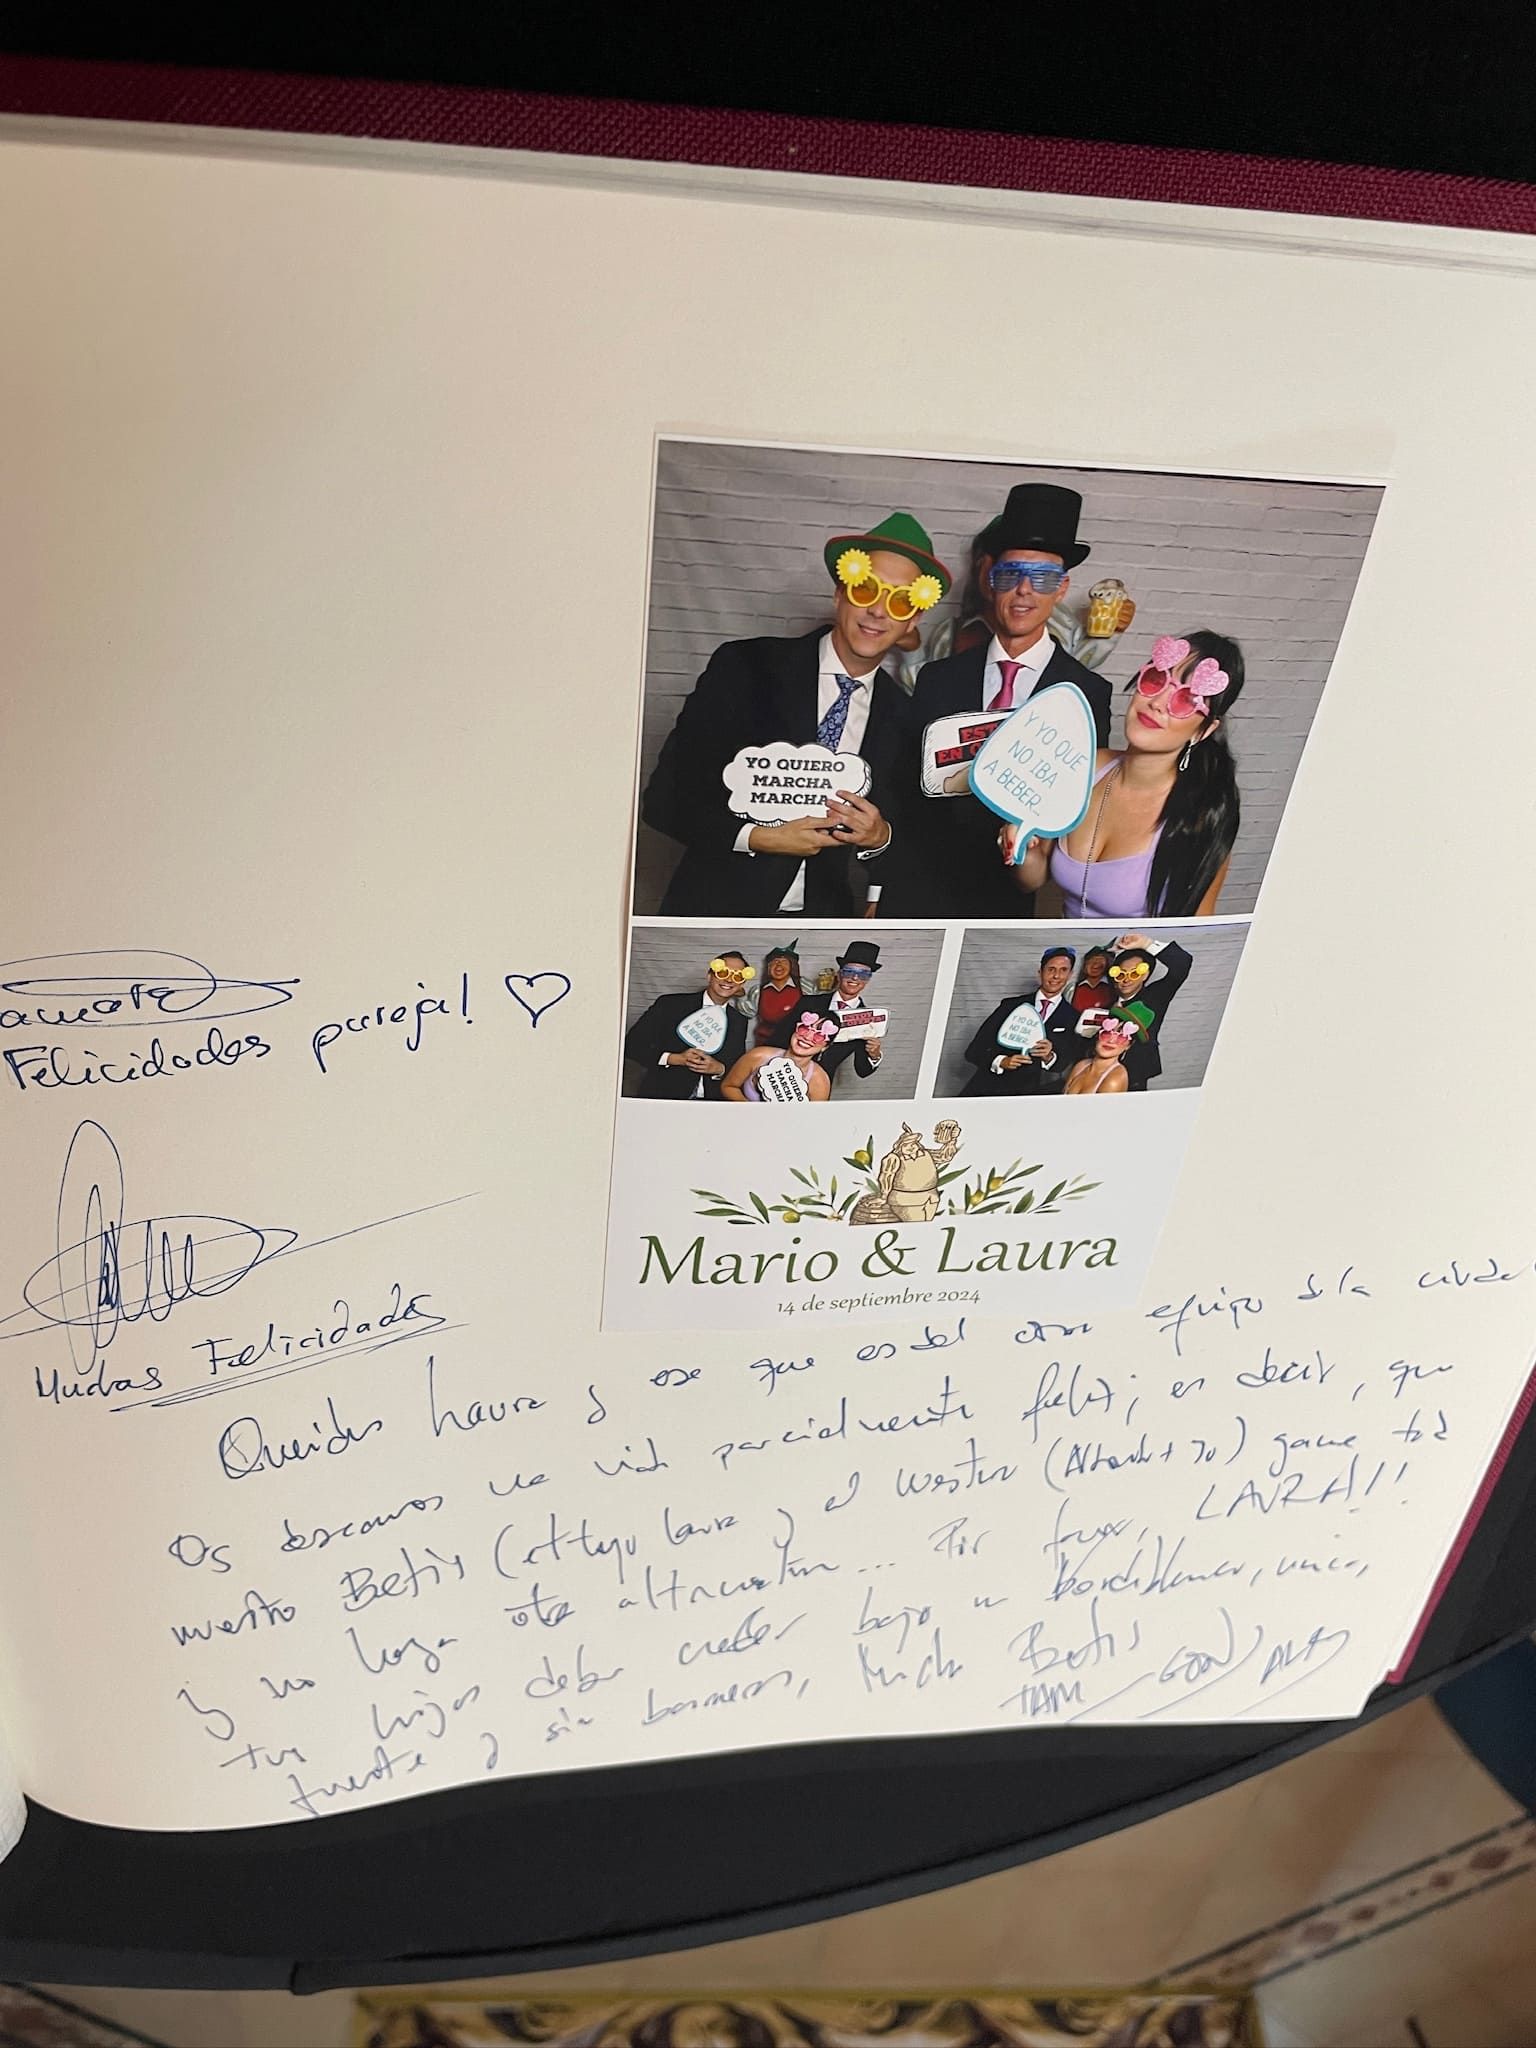 YO QUIERO
MARCHA
MARCHA
EST
EN O
Y YO QUE
NO IBA
A BEBER...
Y YO QUE
NO IBA
A BEBER...
ESTOY
YO QUIERO
MARCHA
MARCHA
Y YO QUE
NO IBA
A BEBER...
Mario & Laura
14 de septiembre 2024
Felicidades pareja! ♡
Muchas Felicidades
Queridos Laura y ese que es del otro equipo de la
Os deseamos una vida parcialmente feliz; es decir, que
nuestro Betis (el tuyo Laura y el nuestro ( + yo) gane
y no haya otra alternativa... Por favor, LAURA!!
tus hijos deben crecer bajo un , única,
fuerte y sin , Mucho Betis